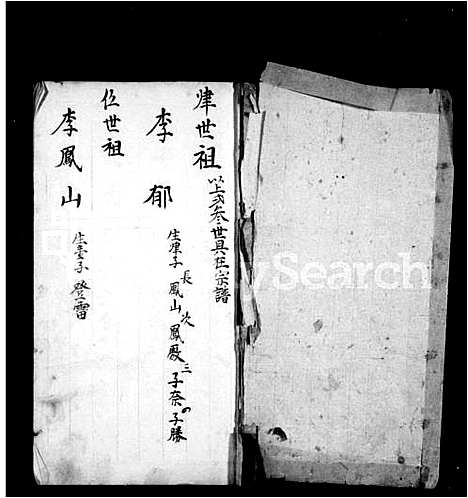 肂世祖
以上弍叁世具在宗譜
李郁
生肂子 長鳳山 次鳳 三子奈 四子勝
伍世祖
李鳳山
生壹子 登雷
Search